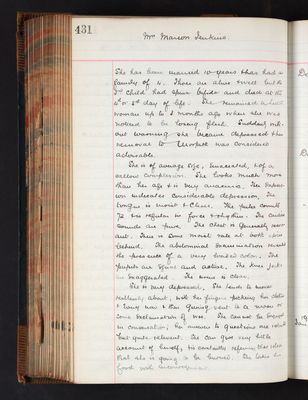 431
Mrs Marion Jenkins.
She has been married 10 years & has had a
family of 4. Three are alive & well but the
3rd child had spina bifida and died at the
4th or 5th day of life. She remained a
woman up to 2 months ago when she was
noticed to be losing flesh. Sudden
out warning she became depressed &
removal to was considered
advisable.
She is of average size, emaciated, & of a
sallow complexion. She looks much more
than her age & is very anaemic. Her
indicates considerable depression. The
tongue is moist & clean. The pulse counts
72 & is regular in force & rhythm. The cardiac
sounds are pure. The chest is generally
There is some at both
behind. The abdominal examination reveals
the presence of a very colon. The
pupils are equal and active. The knee jerks
are exaggerated. The urine is clear.
She is very depressed. She tends to move
restlessly about, with her fingers picking her clothes
& every now & then giving vent to a moan or
some exclamation of woe. She cannot be
in conversation, her answers to questions are
but quite relevant. She can give very little
account of herself, but constantly reiterates the idea
that she is going to be burned. She takes her
food with encouragement.